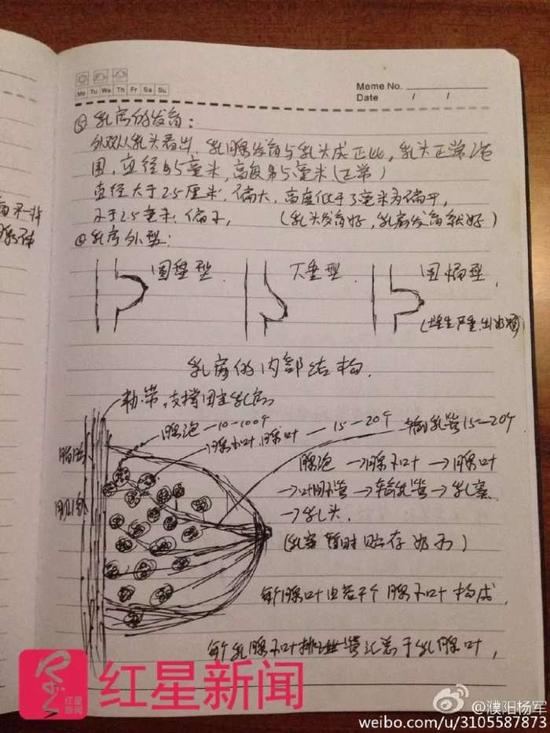 Meme No.
Mo Tu We Th Fr Sa Su
Date / /
③ 乳房的发育：
乳腺发育与乳头成正比，乳头正常范
围，直径 5毫米，高 5毫米（正常）
直径大于2.5厘米：偏大，高度低于3毫米为偏平，
小于2.5毫米：偏小，（乳头发育好，乳房发育就好）
④ 乳房外型：
圆型 下垂型 圆
乳房的内部结构．
韧带，支撑固定乳房
腺泡—10-100个
腺小叶 腺叶 — 15-20个
输乳管15-20个
腺泡 → 腺小叶 → 腺叶
→ 叶 管 → 输乳管 → 乳窦
→ 乳头．
（乳窦暂时贮存奶水）
每个腺叶由若干个腺小叶构成，
每个乳腺小叶 管汇总于乳腺叶，
红星新闻
红星新闻
@濮阳杨军
weibo.com/u/3105587873